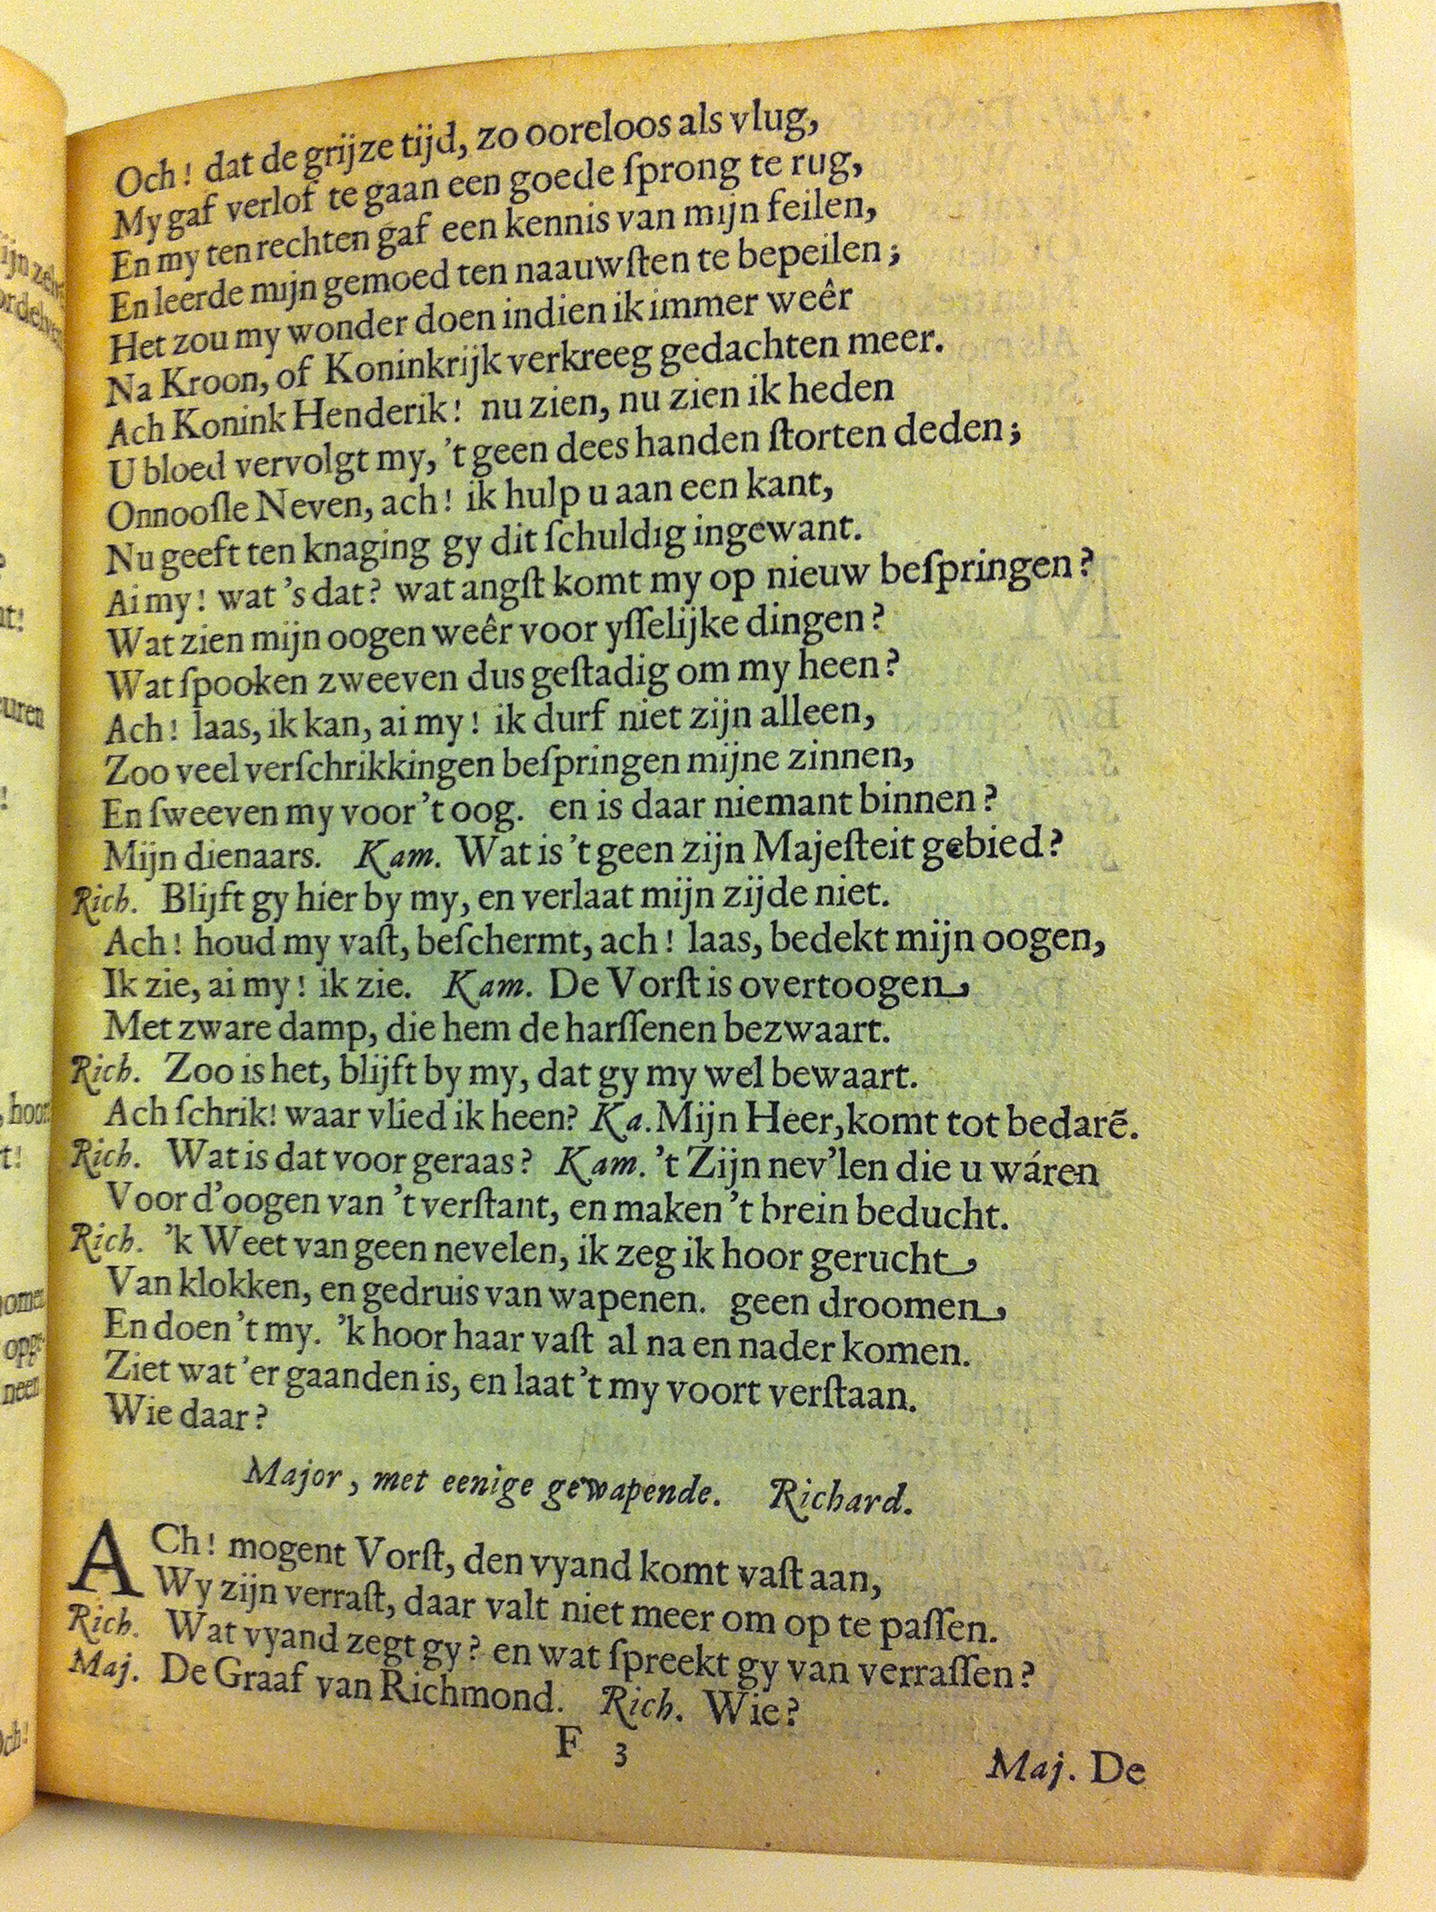 Och! dat de grijze tijd, zo ooreloos als vlug,
My gaf verlof te gaan een goede ſprong te rug,
En my ten rechten gaf een kennis van mijn feilen,
En leerde mijn gemoed ten naauwſten te bepeilen;
Het zou my wonder doen indien ik immer weêr
Na Kroon, of Koninkrijk verkreeg gedachten meer.
Ach Konink Henderik! nu zien, nu zien ik heden
U bloed vervolgt my, 't geen dees handen ſtorten deden;
Onnooſle Neven, ach! ik hulp u aan een kant,
Nu geeft ten knaging gy dit ſchuldig ingewant.
Ai my! wat 's dat? wat angſt komt my op nieuw beſpringen?
Wat zien mijn oogen weêr voor yſſelijke dingen?
Wat ſpooken zweeven dus geſtadig om my heen?
Ach! laas, ik kan, ai my! ik durf niet zijn alleen,
Zoo veel verſchrikkingen beſpringen mijne zinnen,
En ſweeven my voor 't oog. en is daar niemant binnen?
Mijn dienaars. Kam. Wat is 't geen zijn Majeſteit gebied?
Rich. Blijft gy hier by my, en verlaat mijn zijde niet.
Ach! houd my vaſt, beſchermt, ach! laas, bedekt mijn oogen,
Ik zie, ai my! ik zie. Kam. De Vorſt is overtoogen
Met zware damp, die hem de harſſenen bezwaart.
Rich. Zoo is het, blijft by my, dat gy my wel bewaart.
Ach ſchrik! waar vlied ik heen? Ka. Mijn Heer, komt tot bedarē.
Rich. Wat is dat voor geraas? Kam. 't Zijn nev'len die u wáren
Voor d'oogen van 't verſtant, en maken 't brein beducht.
Rich. 'k Weet van geen nevelen, ik zeg ik hoor gerucht
Van klokken, en gedruis van wapenen. geen droomen
En doen 't my. 'k hoor haar vaſt al na en nader komen.
Ziet wat 'er gaanden is, en laat 't my voort verſtaan.
Wie daar?
Major, met eenige gewapende. Richard.
ACh! mogent Vorſt, den vyand komt vaſt aan,
Wy zijn verraſt, daar valt niet meer om op te paſſen.
Rich. Wat vyand zegt gy? en wat ſpreekt gy van verraſſen?
Maj. De Graaf van Richmond. Rich. Wie?
F 3
Maj. De